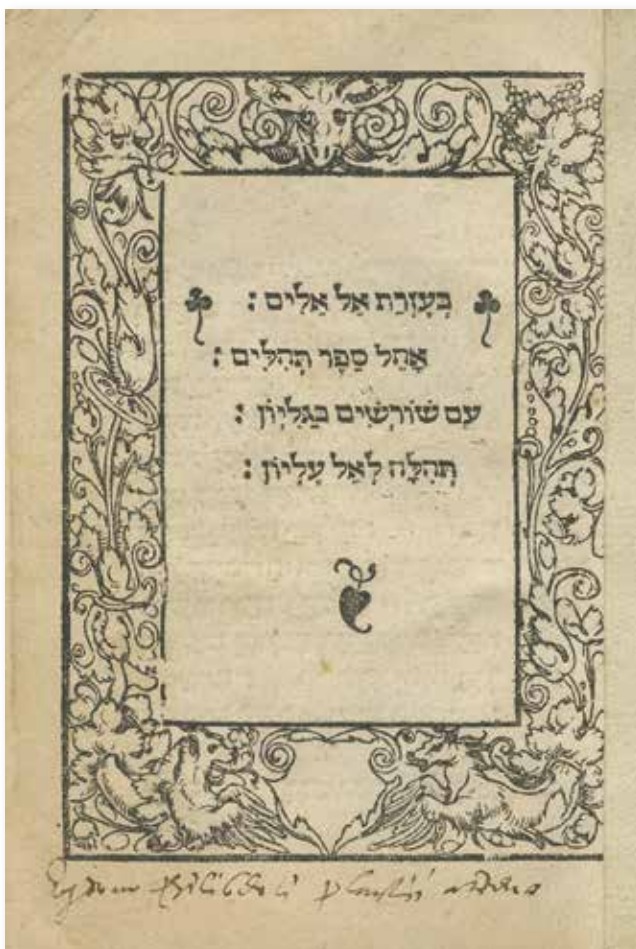 בְּעֶזְרַת אֵל אֵלִים :
אָחֵל סֵפֶר תְּהִלִּים :
עִם שׁוֹרָשִׁים בַּגִּלְיוֹן :
תְּהִלָּה לְאֵל עֶלְיוֹן :